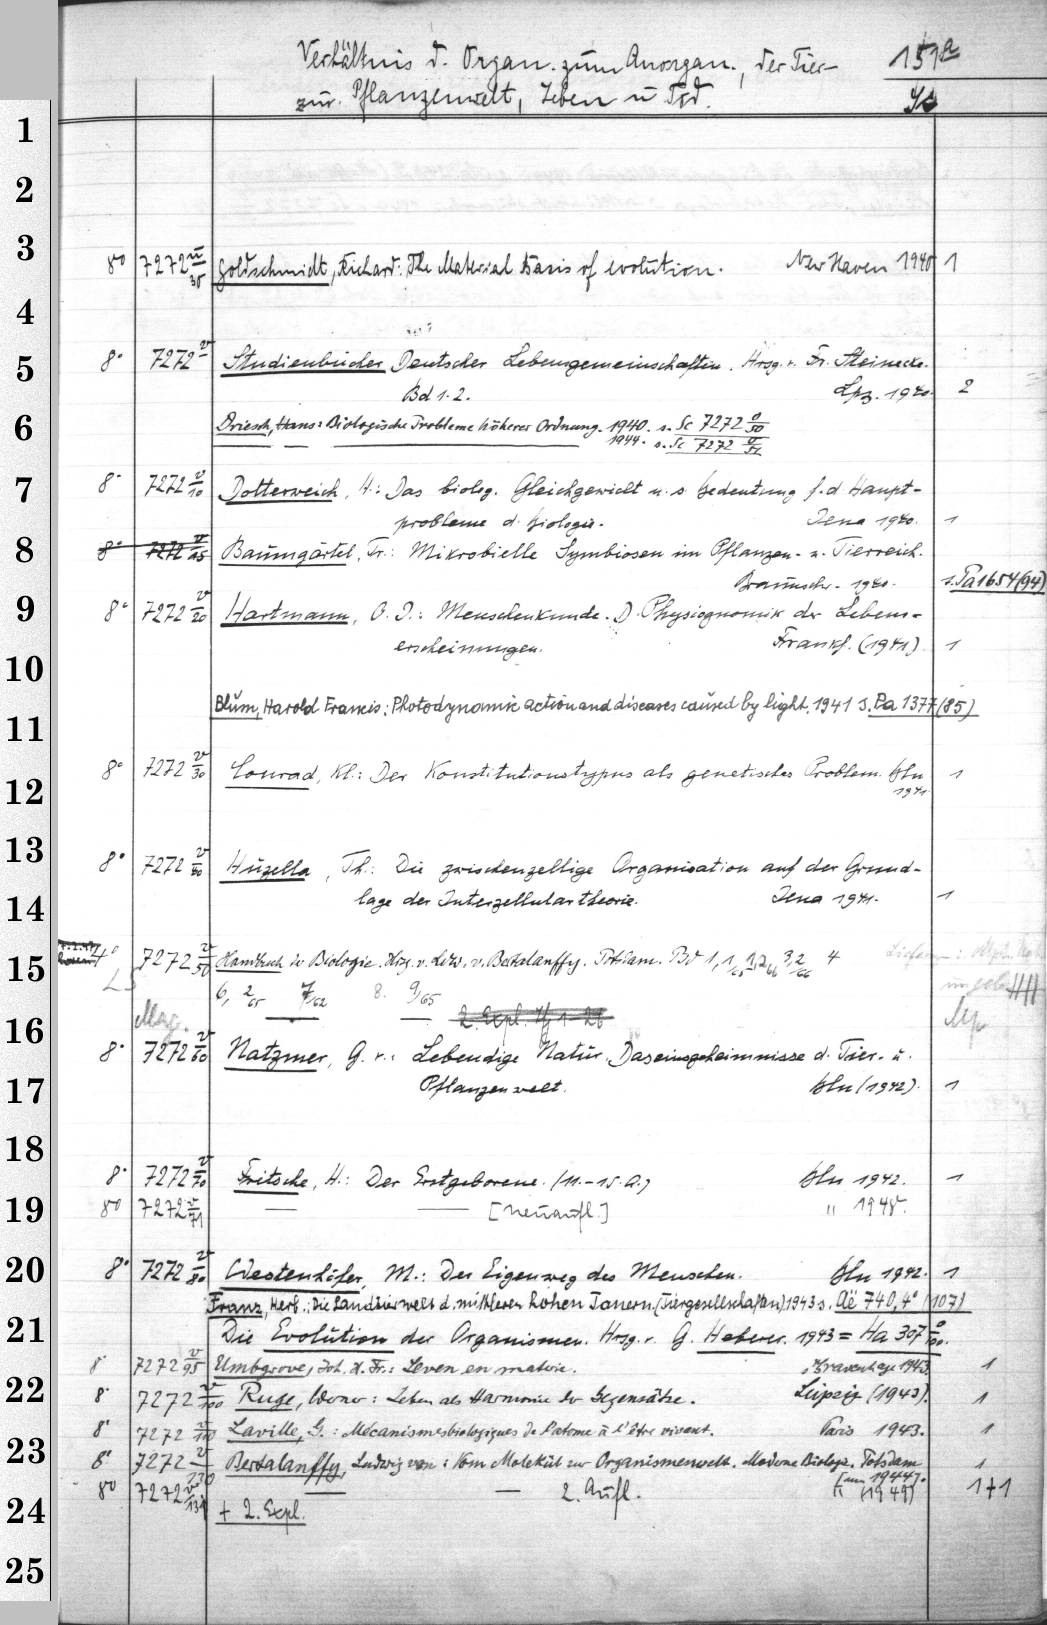 Verhältnis d. Organ. zum Anorgan., der Tier- 151a
zur Pflanzenwelt, Leben u Tod.
1
2
3
8° 7272 u/35 Goldschmidt, Richard: The Material Basis of evolution. New Haven 1940 1
4
5
8° 7272 v Studienbücher Deutscher Lebensgemeinschaften. Hrsg. v. Fr. Steinecke.
Bd 1. 2. Lpz. 1940. 2
6
Driesch, Hans: Biologische Probleme höherer Ordnung. 1940. s. Sc 7272 o/50
1944. s. Sc 7272 o/51
7
8° 7272 v/10 Dotterweich, H.: Das biolog. Gleichgewicht u. s. Bedeutung f. d Haupt-
probleme d. Biologie. Jena 1940. 1
8
8° 7272 v/15 Baumgärtel, Tr.: Mikrobielle Symbiosen im Pflanzen- u. Tierreich.
Braunschw. 1940. s. Pa 1654(94)
9
8° 7272 v/20 Hartmann, O. J.: Menschenkunde. D. Physiognomik der Lebens-
erscheinungen. Frankf. (1941) 1
10
11
Blum, Harold Francis: Photodynamic action and diseases caused by light. 1941 s. Pa 1377(85)
8° 7272 v/30 Conrad, Kl.: Der Konstitutionstypus als genetisches Problem. Bln 1
1941.
12
13
8° 7272 v/40 Huzella, Th.: Die zwischenzellige Organisation auf der Grund-
lage der Interzellulartheorie. Jena 1941. 1
14
15
4° 7272 v/50 Handbuch der Biologie. Hrsg. v. Ludw. v. Bertalanffy. Potsdam. Bd 1, 1/65 1,2/66 3,2/66 4
LS 6, 2/65 7/62 8. 9/65
2 Expl. Lfg 1-26
16
Mag.
8° 7272 v/60 Natzmer, G. v.: Lebendige Natur. Daseinsgeheimnisse d. Tier- u.
Pflanzenwelt. Bln (1942). 1
17
18
8° 7272 v/70 Fritsche, H.: Der Erstgeborene. (11.-15. A.) Bln 1942. 1
19
8° 7272 v/71 — — [Neuaufl.] " 1948.
20
8° 7272 v/80 Westenhöfer, M.: Der Eigenweg des Menschen. Bln 1942. 1
Franz, Herb.: Die Landtierwelt d. mittleren hohen Tauern. (Tiergesellschaften) 1943 s. Aë 740, 4° (107)
21
Die Evolution der Organismen. Hrsg. v. G. Heberer. 1943 = Ha 307 o/100.
8° 7272 v/95 Umbgrove, Joh. H. Fr.: Leven en materie. 's Gravenhage 1943. 1
22
8° 7272 v/100 Ruge, Werner: Leben als Harmonie der Gegensätze. Leipzig (1943). 1
8° 7272 v/110 Laville, G.: Mécanismes biologiques de l'atome à l'être vivant. Paris 1943. 1
23
8° 7272 v/130 Bertalanffy, Ludwig von: Vom Molekül zur Organismenwelt. Moderne Biologie. Potsdam 1
[um 1944].
8° 7272 v/131 — — 2. Aufl. " (1949) 1+1
24
+ 2. Expl.
25